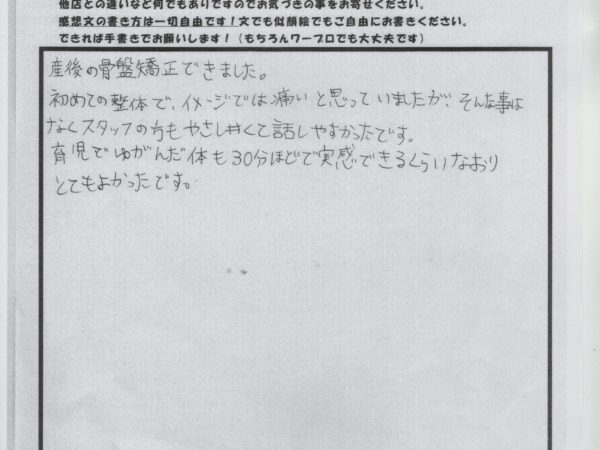 他店との違いなど何でもありですのでお気づきの事をお寄せください。
感想文の書き方は一切自由です！文でも似顔絵でもご自由にお書きください。
できれば手書きでお願いします！（もちろんワープロでも大丈夫です）
産後の骨盤矯正できました。
初めての整体で、イメージでは痛いと思っていましたが、そんな事は
なくスタッフの方もやさしくて話しやすかったです。
育児でゆがんだ体も30分ほどで実感できるくらいなおり
とてもよかったです。